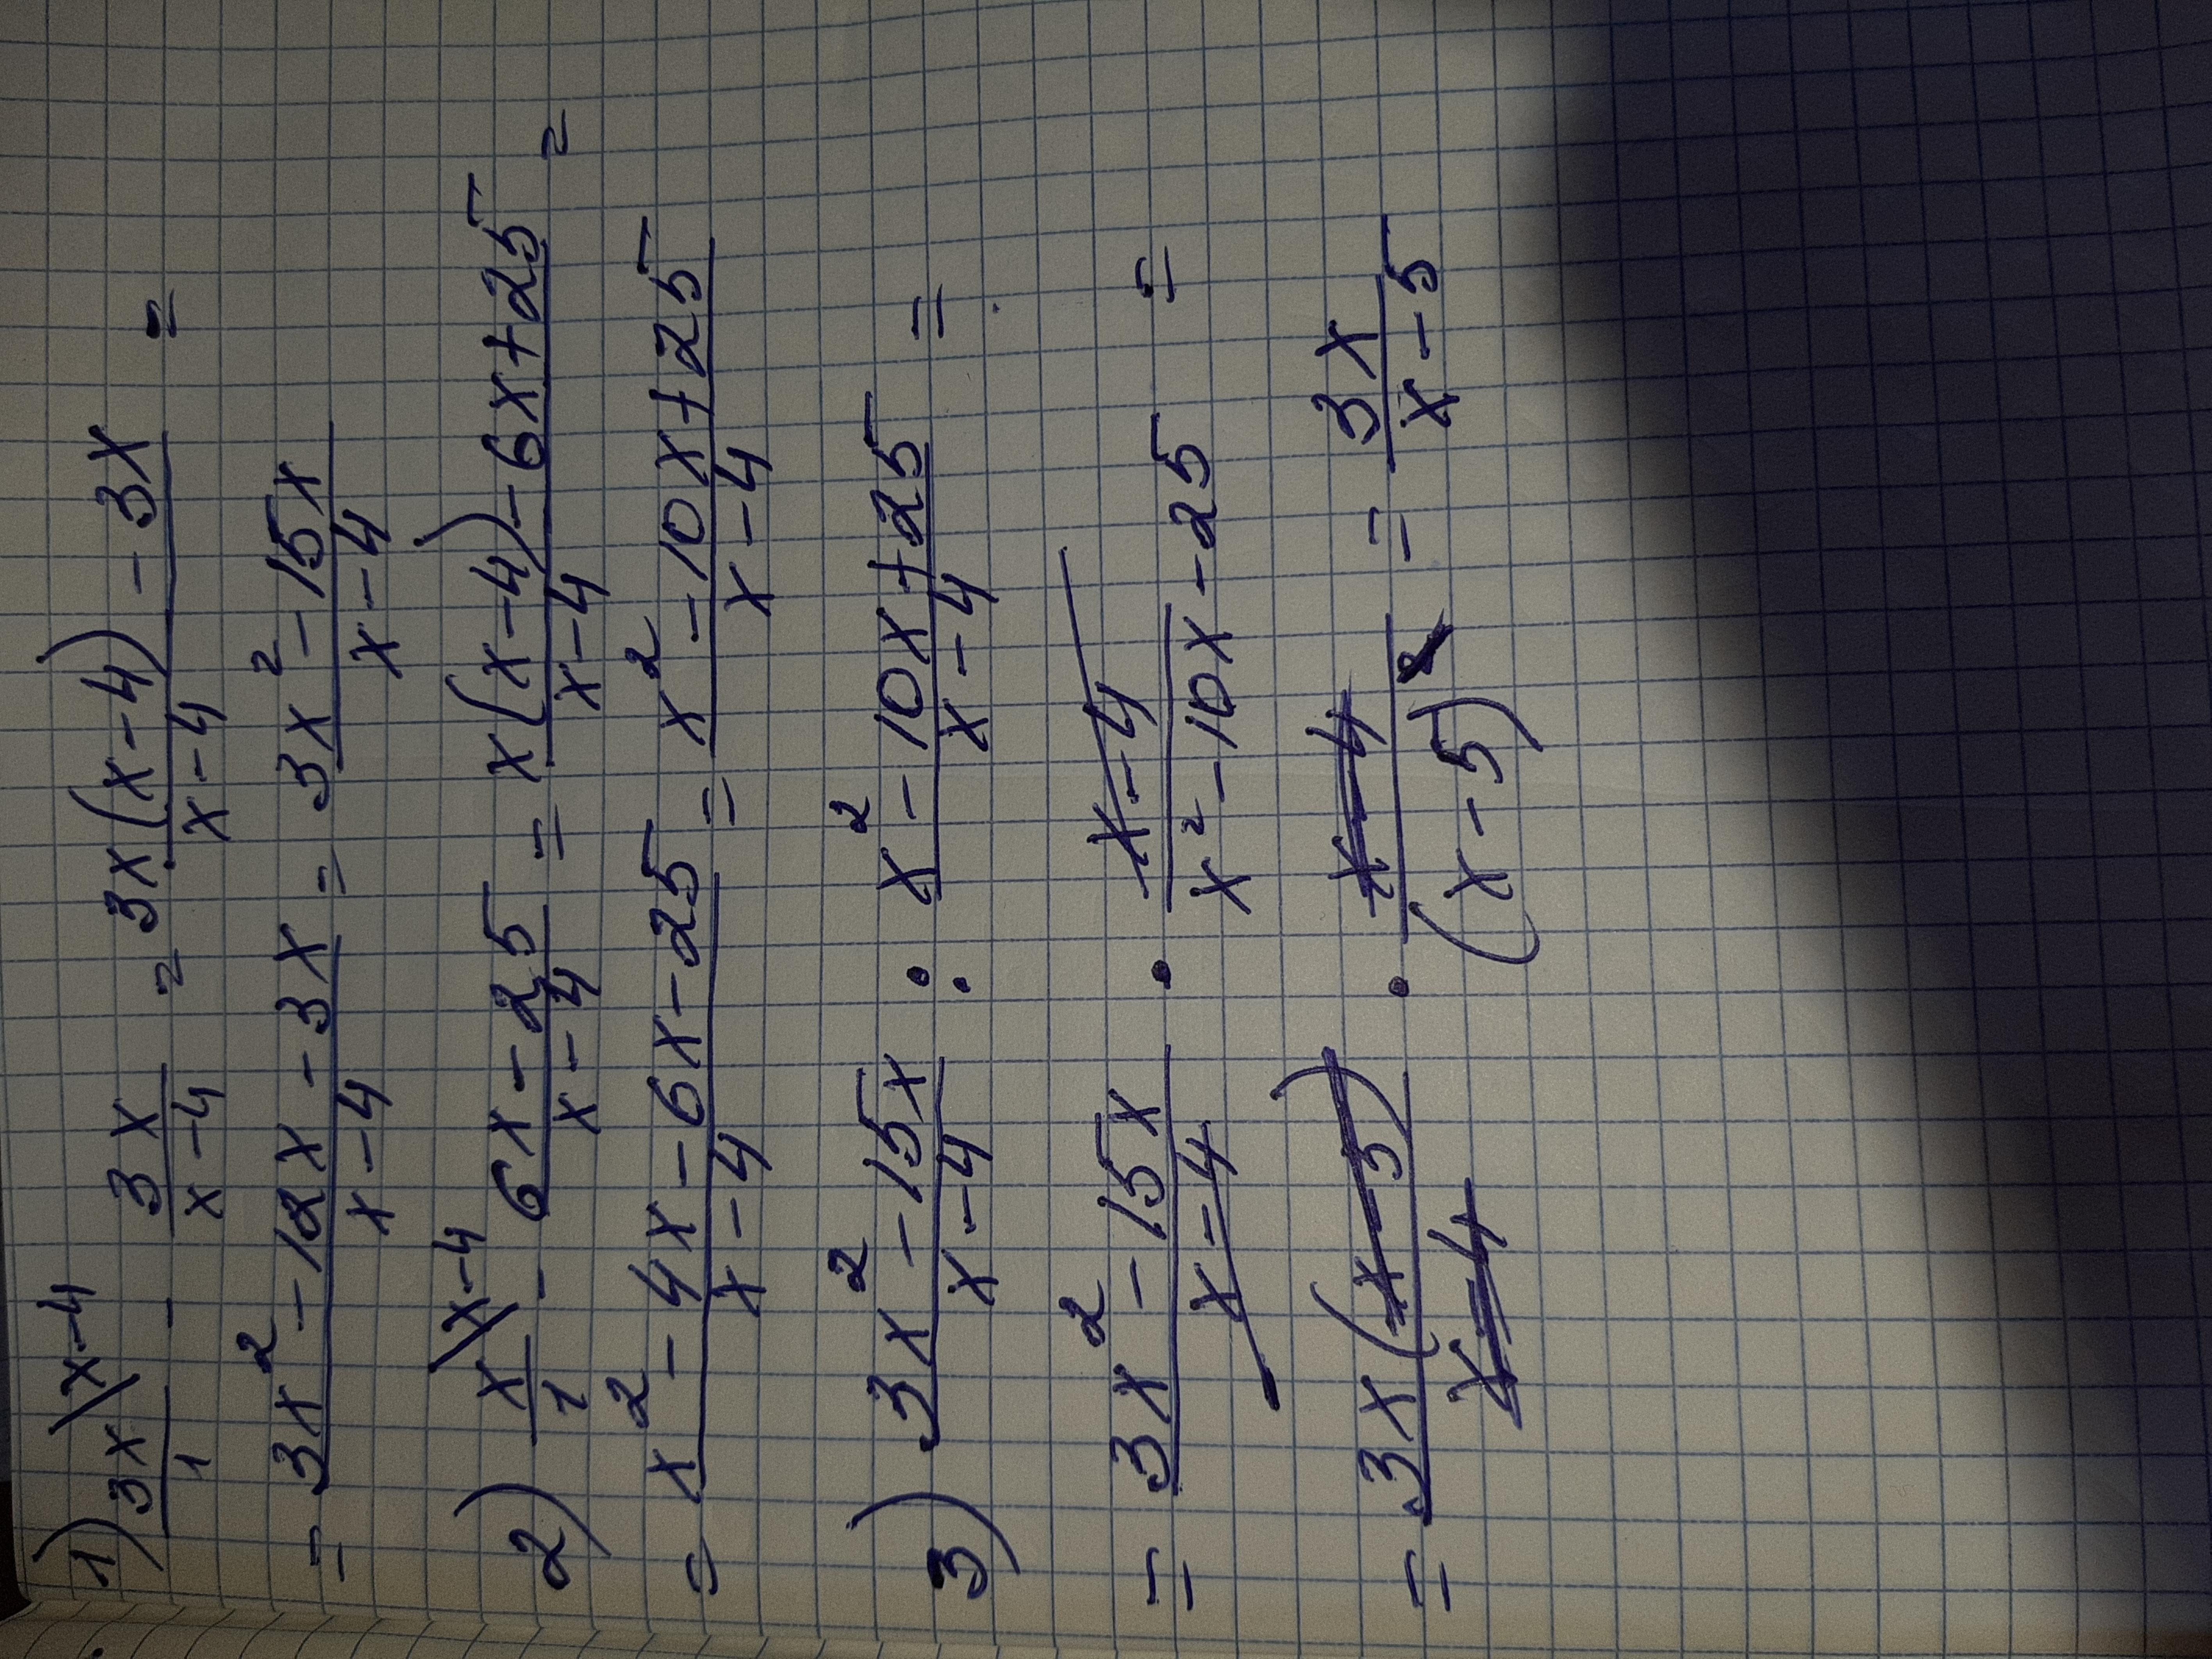 1) 3x/1 \x-4 - 3x/x-4 = 3x(x-4)-3x/x-4 =
= 3x²-12x-3x/x-4 = 3x²-15x/x-4
2) x/1 \x-4 - 6x-25/x-4 = x(x-4)-6x+25/x-4 =
= x²-4x-6x-25/x-4 = x²-10x+25/x-4
3) 3x²-15x/x-4 : x²-10x+25/x-4 =
= 3x²-15x/x-4 · x-4/x²-10x-25 =
= 3x(x-5)/x-4 · x-4/(x-5)² = 3x/x-5